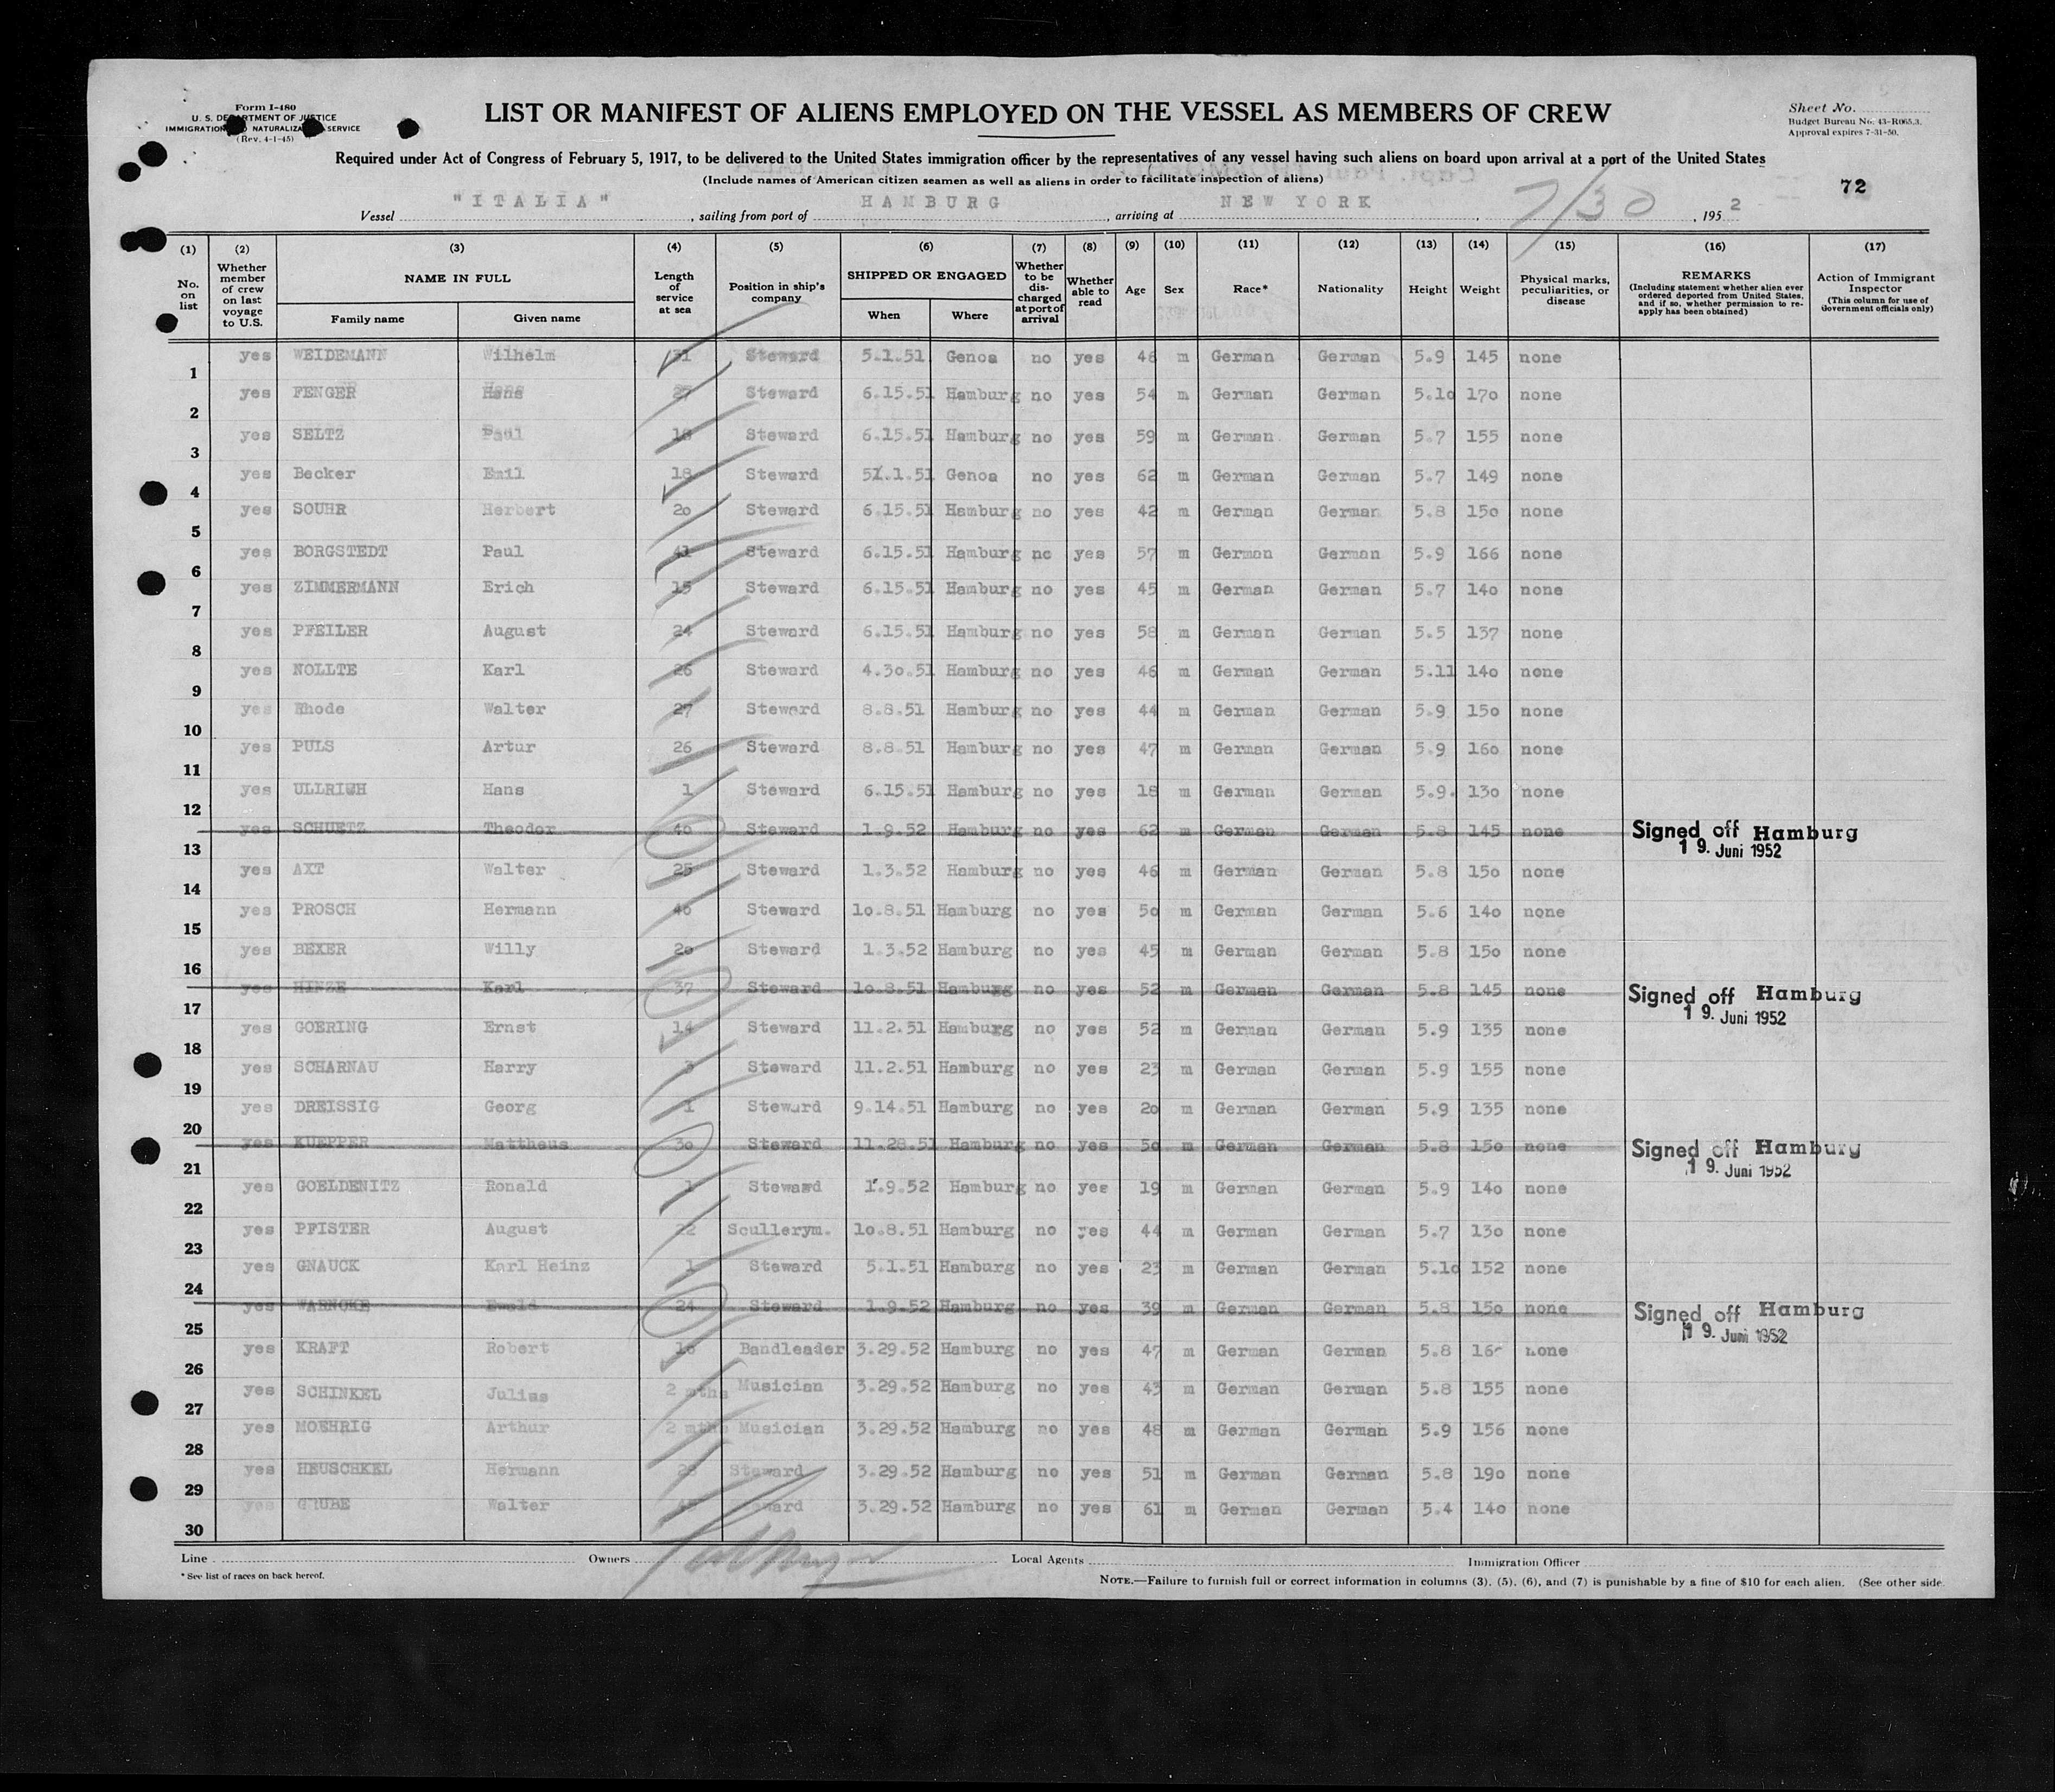 Form I-480
U. S. DEPARTMENT OF JUSTICE
IMMIGRATION AND NATURALIZATION SERVICE
(Rev. 4-1-45)
LIST OR MANIFEST OF ALIENS EMPLOYED ON THE VESSEL AS MEMBERS OF CREW
Sheet No.
Budget Bureau No. 43-R065.3.
Approval expires 7-31-50.
Required under Act of Congress of February 5, 1917, to be delivered to the United States immigration officer by the representatives of any vessel having such aliens on board upon arrival at a port of the United States
(Include names of American citizen seamen as well as aliens in order to facilitate inspection of aliens)
72
Vessel "ITALIA", sailing from port of HAMBURG, arriving at NEW YORK, 7/30, 1952
(1) (2) (3) (4) (5) (6) (7) (8) (9) (10) (11) (12) (13) (14) (15) (16) (17)
No. on list
Whether member of crew on last voyage to U.S.
NAME IN FULL
Family name
Given name
Length of service at sea
Position in ship's company
SHIPPED OR ENGAGED
When
Where
Whether to be discharged at port of arrival
Whether able to read
Age
Sex
Race*
Nationality
Height
Weight
Physical marks, peculiarities, or disease
REMARKS
(Including statement whether alien ever ordered deported from United States, and if so, whether permission to re-apply has been obtained)
Action of Immigrant Inspector
(This column for use of Government officials only)
1 yes WEIDEMANN Wilhelm 31 Steward 5.1.51 Genoa no yes 46 m German German 5.9 145 none
2 yes FENGER Hans 27 Steward 6.15.51 Hamburg no yes 54 m German German 5.10 170 none
3 yes SELTZ Paul 18 Steward 6.15.51 Hamburg no yes 59 m German German 5.7 155 none
4 yes Becker Emil 18 Steward 5.1.51 Genoa no yes 62 m German German 5.7 149 none
5 yes SOUHR Herbert 20 Steward 6.15.51 Hamburg no yes 42 m German German 5.8 150 none
6 yes BORGSTEDT Paul 41 Steward 6.15.51 Hamburg no yes 57 m German German 5.9 166 none
7 yes ZIMMERMANN Erich 15 Steward 6.15.51 Hamburg no yes 45 m German German 5.7 140 none
8 yes PFEILER August 24 Steward 6.15.51 Hamburg no yes 58 m German German 5.5 137 none
9 yes NOLLTE Karl 26 Steward 4.30.51 Hamburg no yes 46 m German German 5.11 140 none
10 yes Rhode Walter 27 Steward 8.8.51 Hamburg no yes 44 m German German 5.9 150 none
11 yes PULS Artur 26 Steward 8.8.51 Hamburg no yes 47 m German German 5.9 160 none
12 yes ULLRICH Hans 1 Steward 6.15.51 Hamburg no yes 18 m German German 5.9. 130 none
13 yes SCHUETZ Theodor 40 Steward 1.9.52 Hamburg no yes 62 m German German 5.8 145 none Signed off Hamburg
19. Juni 1952
14 yes AXT Walter 25 Steward 1.3.52 Hamburg no yes 46 m German German 5.8 150 none
15 yes PROSCH Hermann 40 Steward 10.8.51 Hamburg no yes 50 m German German 5.6 140 none
16 yes BEXER Willy 20 Steward 1.3.52 Hamburg no yes 45 m German German 5.8 150 none
17 yes HINZE Karl 37 Steward 10.8.51 Hamburg no yes 52 m German German 5.8 145 none Signed off Hamburg
19. Juni 1952
18 yes GOERING Ernst 14 Steward 11.2.51 Hamburg no yes 52 m German German 5.9 135 none
19 yes SCHARNAU Harry 3 Steward 11.2.51 Hamburg no yes 23 m German German 5.9 155 none
20 yes DREISSIG Georg 1 Steward 9.14.51 Hamburg no yes 20 m German German 5.9 135 none
21 yes KUEPPER Mattheus 30 Steward 11.28.51 Hamburg no yes 50 m German German 5.8 150 none Signed off Hamburg
19. Juni 1952
22 yes GOELDENITZ Ronald 1 Steward 1.9.52 Hamburg no yes 19 m German German 5.9 140 none
23 yes PFISTER August 22 Scullerym. 10.8.51 Hamburg no yes 44 m German German 5.7 130 none
24 yes GNAUCK Karl Heinz 1 Steward 5.1.51 Hamburg no yes 23 m German German 5.10 152 none
25 yes WARNCKE Ewald 24 Steward 1.9.52 Hamburg no yes 39 m German German 5.8 150 none Signed off Hamburg
19. Juni 1952
26 yes KRAFT Robert Bandleader 3.29.52 Hamburg no yes 47 m German German 5.8 none
27 yes SCHINKEL Julius 2 mths Musician 3.29.52 Hamburg no yes 43 m German German 5.8 155 none
28 yes MOEHRIG Arthur 2 mths Musician 3.29.52 Hamburg no yes 48 m German German 5.9 156 none
29 yes HEUSCHKEL Hermann Steward 3.29.52 Hamburg no yes 51 m German German 5.8 190 none
30 yes GRUBE Walter Steward 3.29.52 Hamburg no yes 61 m German German 5.4 140 none
Line Owners Local Agents Immigration Officer
* See list of races on back hereof.
NOTE.—Failure to furnish full or correct information in columns (3), (5), (6), and (7) is punishable by a fine of $10 for each alien. (See other side.